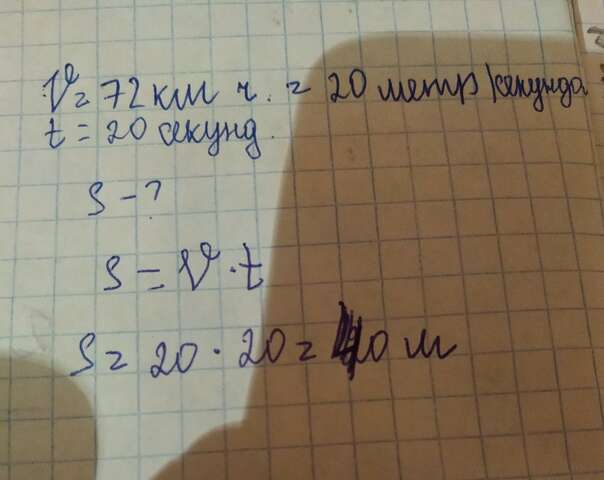 V = 72 км ч. = 20 метр/секунда
t = 20 секунд.
S - ?
S = V · t
S = 20 · 20 = 40 м